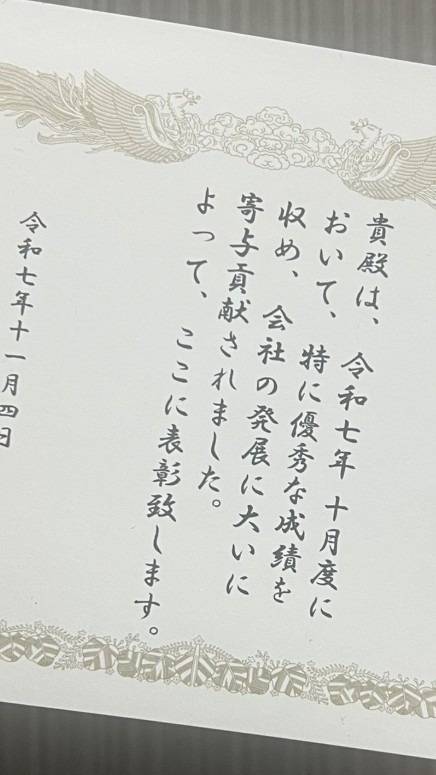 貴殿は、令和七年十月度に
おいて、特に優秀な成績を
収め、会社の発展に大いに
寄与貢献されました。
よって、ここに表彰致します。
令和七年十一月四日